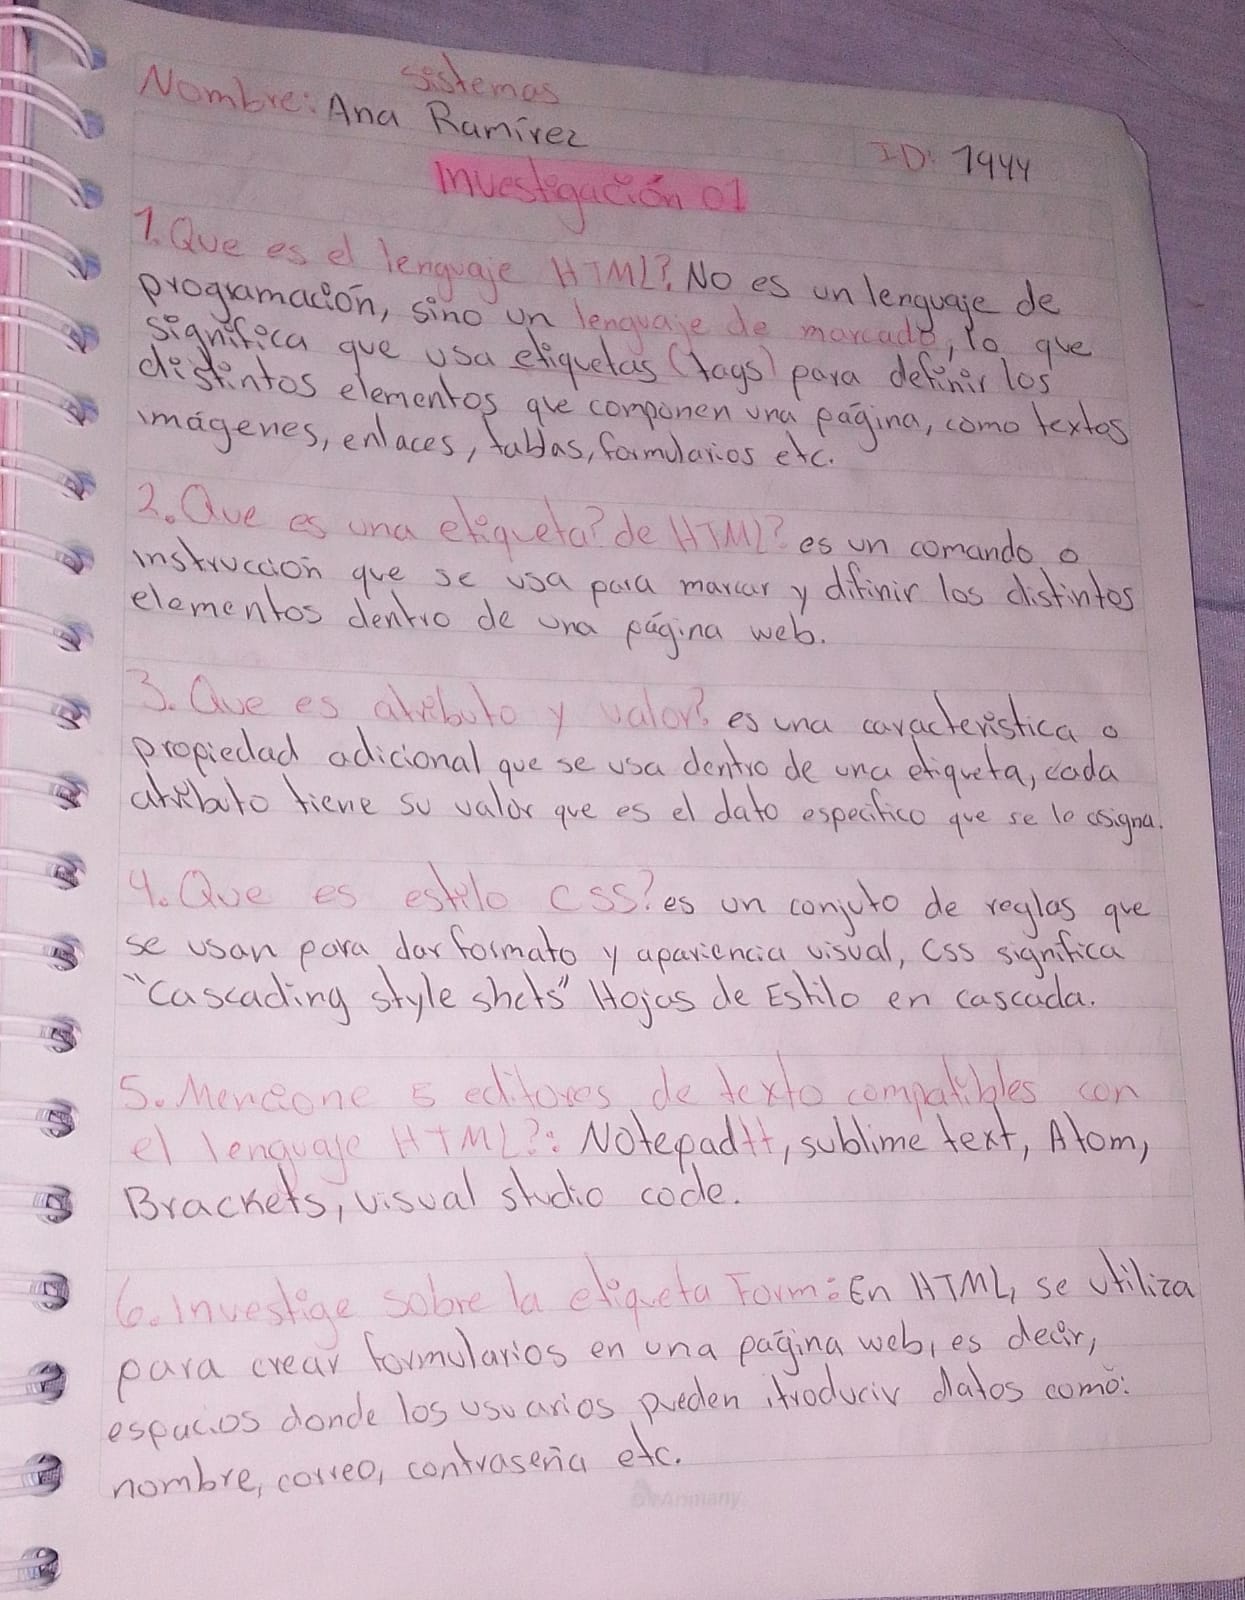 sistemas
Nombre: Ana Ramírez
ID: 7944
Investigación 01
1. Que es el lenguaje HTML? No es un lenguaje de
programación, sino un lenguaje de marcado, lo que
significa que usa etiquetas (tags) para definir los
distintos elementos que componen una página, como textos
imágenes, enlaces, tablas, formularios etc.
2. Que es una etiqueta? de HTML? es un comando o
instrucción que se usa para marcar y difinir los distintos
elementos dentro de una página web.
3. Que es atributo y valor? es una caracteristica o
propiedad adicional que se usa dentro de una etiqueta, cada
atributo tiene su valor que es el dato especifico que se le asigna.
4. Que es estilo CSS? es un conjuto de reglas que
se usan para dar formato y apariencia visual, Css significa
"Cascading style shets" Hojas de Estilo en cascada.
5. Mencione 5 editores de texto compatibles con
el lenguaje HTML?: Notepad++, sublime text, Atom,
Brackets, visual studio code.
6. Investige sobre la etiqueta Form: En HTML, se utiliza
para crear formularios en una página web, es decir,
espacios donde los usuarios pueden itroducir datos como:
nombre, correo, contraseña etc.